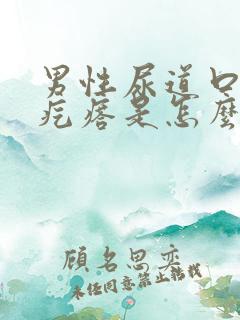 男性尿道口
疙瘩是怎麼
顧名思奕
未经同意禁止転載